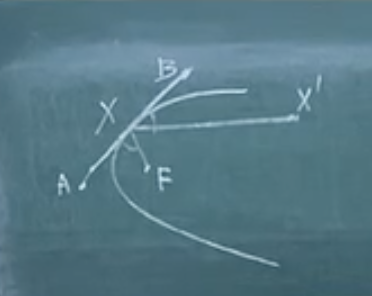 B
X
X'
A
F